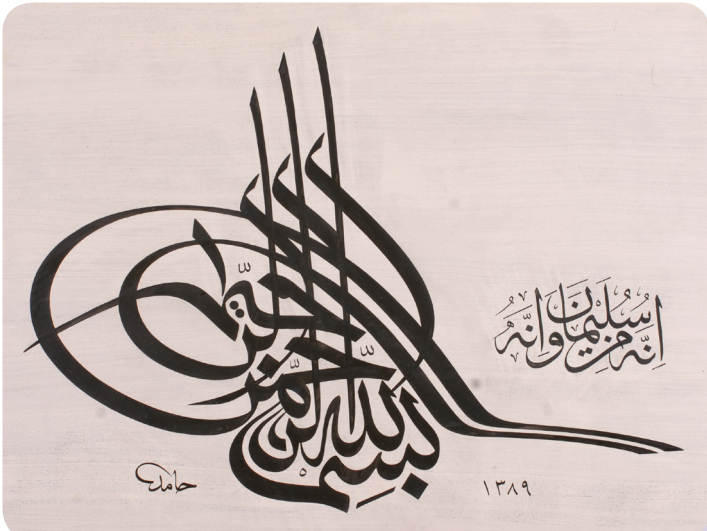 إنّه من سليمان وإنّه
بسم الله الرحمن الرحيم
حامد
١٣٨٩